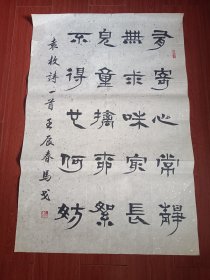 有寄心常靜
無求味最長
兒童擒柳絮
不得也何妨
袁枚詩一首 壬辰春馬